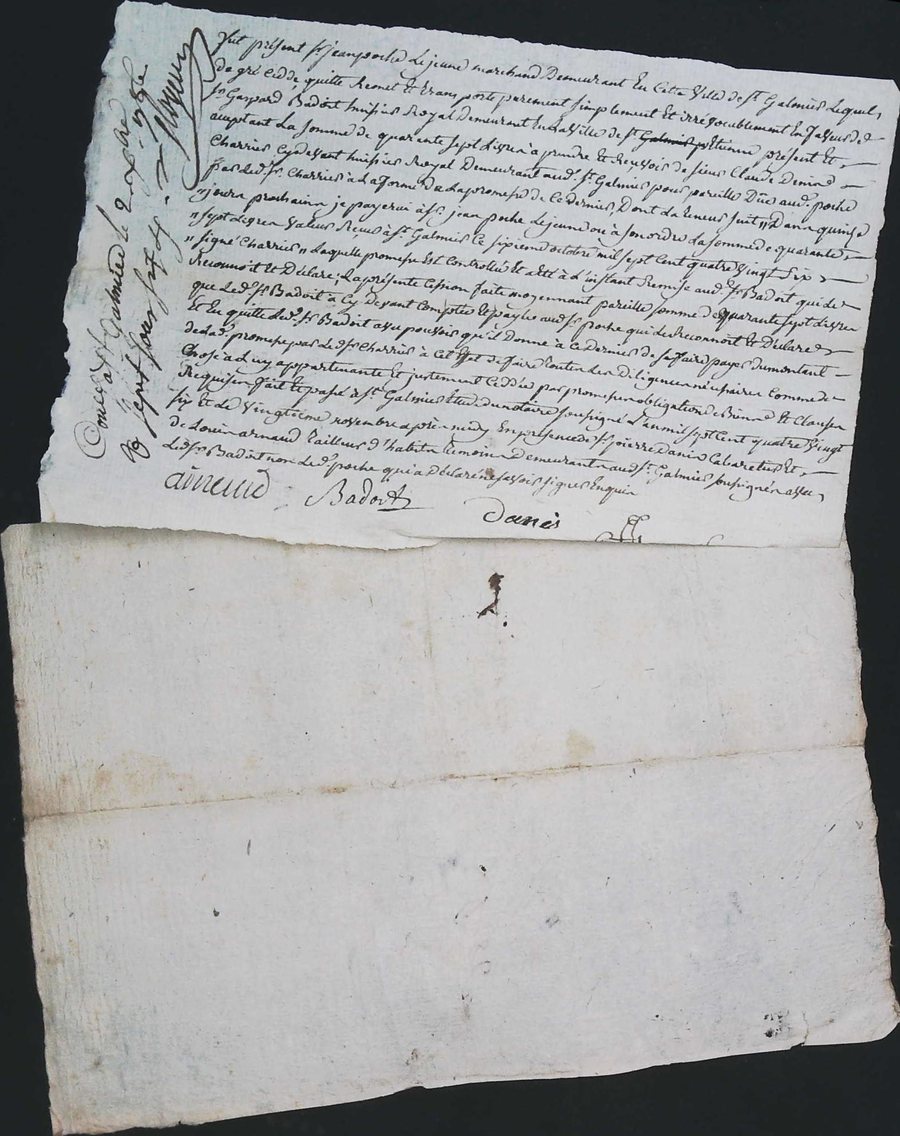 fut présent Sr jean poche Le jeune marchand Demeurant En Cette Ville de St Galmier Lequel
de gré Cedde, quitte Remet Et Transporte purement simplement et irrévocablement En faveur de
Sr Gaspard Badoit huissier Royal Demeurant En la Ville de St Galmier Etienne présent Et
acceptant La somme de quarante sept Livres à prendre Et Recevoir de sieur Claude
Charries Cydevant huissier Royal Demeurant aud. St Galmier pour pareille Düe aud. poche
par Led. Sr Charries à La forme de La promesse de Ce dernier, Dont La teneur suit " D'ans quinze
" jours prochain je payerai à Sr jean poche Le jeune ou à son ordre La somme de quarante
" sept Livres Valeur Reçue à St Galmier Ce sixieme octobre mil sept Cent quatre Vingt Six
" signé Charries " Laquelle promesse Est Controllée Et a Eté à L'instant Remise aud. Sr Badoit qui Le
Reconnoit Et Déclare, La présente Cession faite moyennant pareille somme de quarante sept Livres
que Led. Sr Badoit à Cy devant Comptée Et payée aud. Sr poche qui Le Reconnoit Et Déclare
Et En quitte Led. Sr Badoit avec pouvoir qu'il Donne à Ce dernier de se faire payer Du montant
de Lad. promesse par Led. Sr Charries à Cet Effet de faire toutes Les Diligences nécessaires Comme de
Chose à Luy appartenante Et justement Ceddée par promesse obligation de Biens Et Clauses
Requises fait Et passé à St Galmier Etude du notaire soussigné L'an mil sept Cent quatre Vingt
six Et Le Vingtieme novembre après midy En présence de Sr pierre Danis Cabaretier Et
de Louis arnaud tailleur d'habits temoins Demeurants aud. St Galmier soussignés avec
Led. Sr Badoit non Led. poche qui a Déclaré ne savoir signer Enquis
arnaud
Badoit
Danis
Con.lé à St Galmier Le 2 Xbre 1786